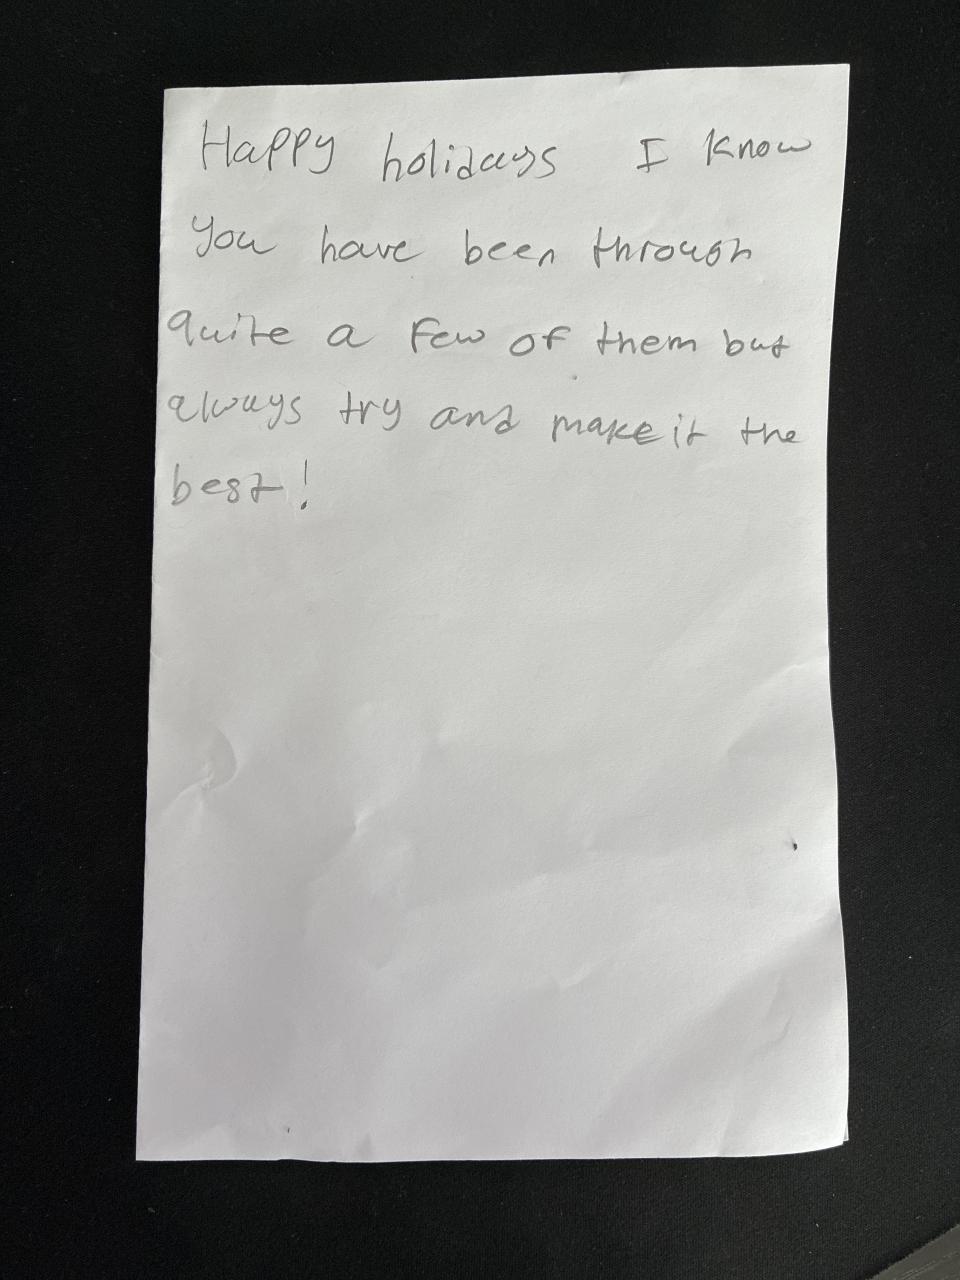 Happy holidays I know
you have been through
quite a few of them but
always try and make it the
best!